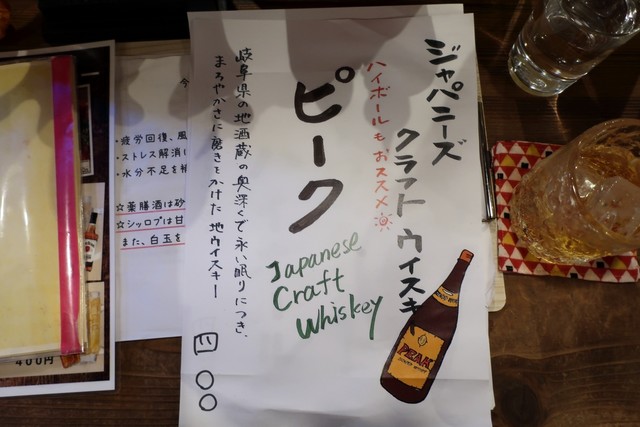 ジャパニーズ
クラフトウイスキー
ハイボールもおススメ
ピーク
Japanese
Craft
Whiskey
岐阜県の地酒蔵の奥深くで永い眠りにつき、
まろやかさに磨きをかけた地ウイスキー
四〇〇
PEAK
今
・疲労回復、風
・ストレス解消
・水分不足を
☆薬膳酒は砂
☆シロップは甘
また、白玉を
400円